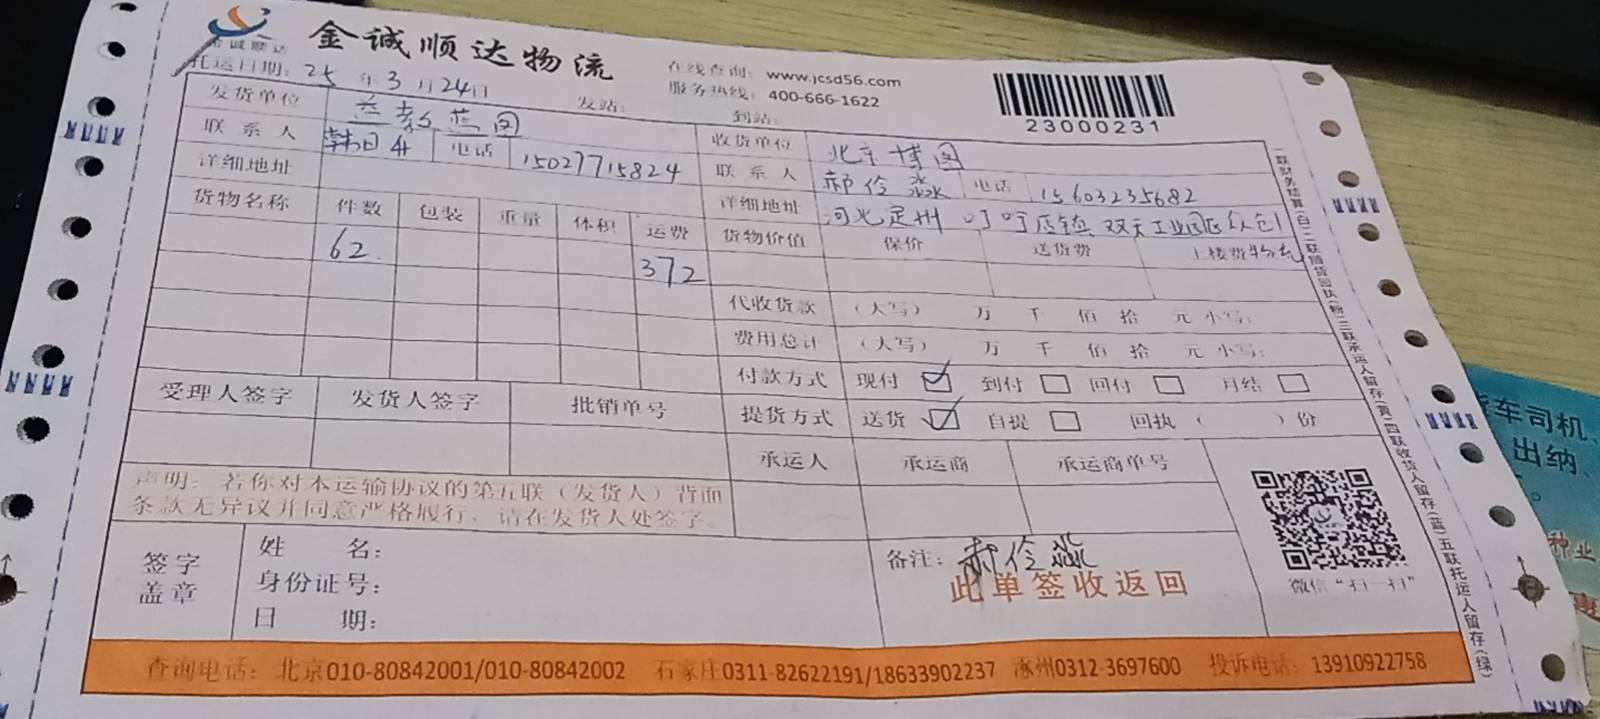 金诚顺达
金诚顺达物流
在线查询: www.jcsd56.com
服务热线: 400-666-1622
23000231
托运日期: 25 年 3 月 24 日 发站: 到站:
发货单位
收货单位 北京博图
联系人 电话 15027715824
联系人 郝伶淼 电话 15603235682
详细地址
详细地址 河北定州 叮叮店镇 双天工业园区众创物流
货物名称 件数 包装 重量 体积 运费
货物价值 保价 送货费 上楼费
62 372
代收货款 (大写) 万 千 佰 拾 元 小写:
费用总计 (大写) 万 千 佰 拾 元 小写:
付款方式 现付 ☑ 到付 □ 回付 □ 月结 □
受理人签字 发货人签字 批销单号
提货方式 送货 ☑ 自提 □ 回执 ( ) 份
承运人 承运商 承运商单号
声明: 若你对本运输协议的第五联(发货人)背面
条款无异议并同意严格履行, 请在发货人处签字。
签字
盖章
姓 名:
身份证号:
日 期:
备注: 郝伶淼
此单签收返回
微信“扫一扫”
一联财务结算(白)二联随货回执(粉)三联承运人留存(黄)四联收货人留存(蓝)五联托运人留存(绿)
查询电话: 北京010-80842001/010-80842002 石家庄0311-82622191/18633902237 涿州0312-3697600 投诉电话: 13910922758
货车司机、
出纳、
种业
惠